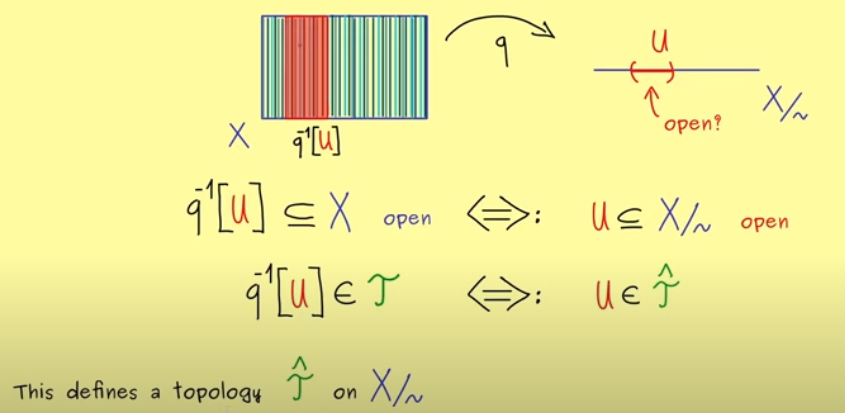 q
U
open?
X/~
X
q⁻¹[U]
q⁻¹[U] ⊆ X open ⟺: U ⊆ X/~ open
q⁻¹[U] ∈ 𝒯 ⟺: U ∈ 𝒯̂
This defines a topology 𝒯̂ on X/~